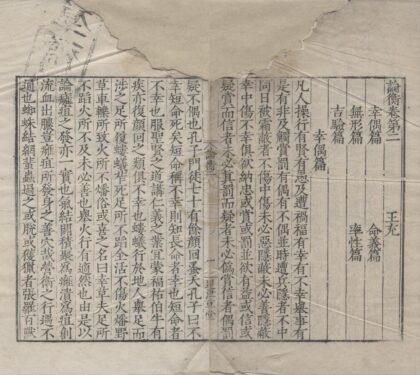 論衡卷第二 王充
幸偶篇 命義篇
無形篇 率性篇
吉驗篇
幸偶篇
凡人操行有賢有愚及遭禍福有幸有不幸舉事有
是有非及觸賞罰有偶有不偶並時遭兵隱者不中
同日被霜蔽者不傷中傷未必惡隱蔽未必善隱蔽
幸中傷不幸俱欲納忠或賞或罰並欲有益或信或
疑賞而信者未必真罰而疑者未必偽賞信者偶罰
疑不偶也孔子門徒七十有餘顏回蚤夭孔子曰不
幸短命死矣短命稱不幸則知長命者幸也短命者
不幸也服聖賢之道講仁義之業宜蒙福祐伯牛有
疾亦復顏回之類俱不幸也螻蟻行於地人舉足而
涉之足所履螻蟻苲死足所不蹈全活不傷火燔野
草車轢所致火所不燔俗或喜之名曰幸草夫足所
不蹈火所不及未必善也舉火行有適然也由是以
論癰疽之發亦一實也氣結閼積聚為癰潰為疽創
流血出膿豈癰疽所發身之善穴哉營衛之行遇不
通也蜘蛛結網蜚蟲過之或脫或獲獵者張羅百獸